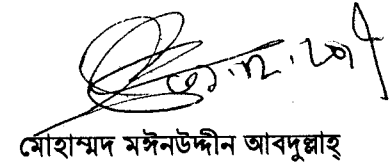 মোহাম্মদ মঈনউদ্দীন আবদুল্লাহ্